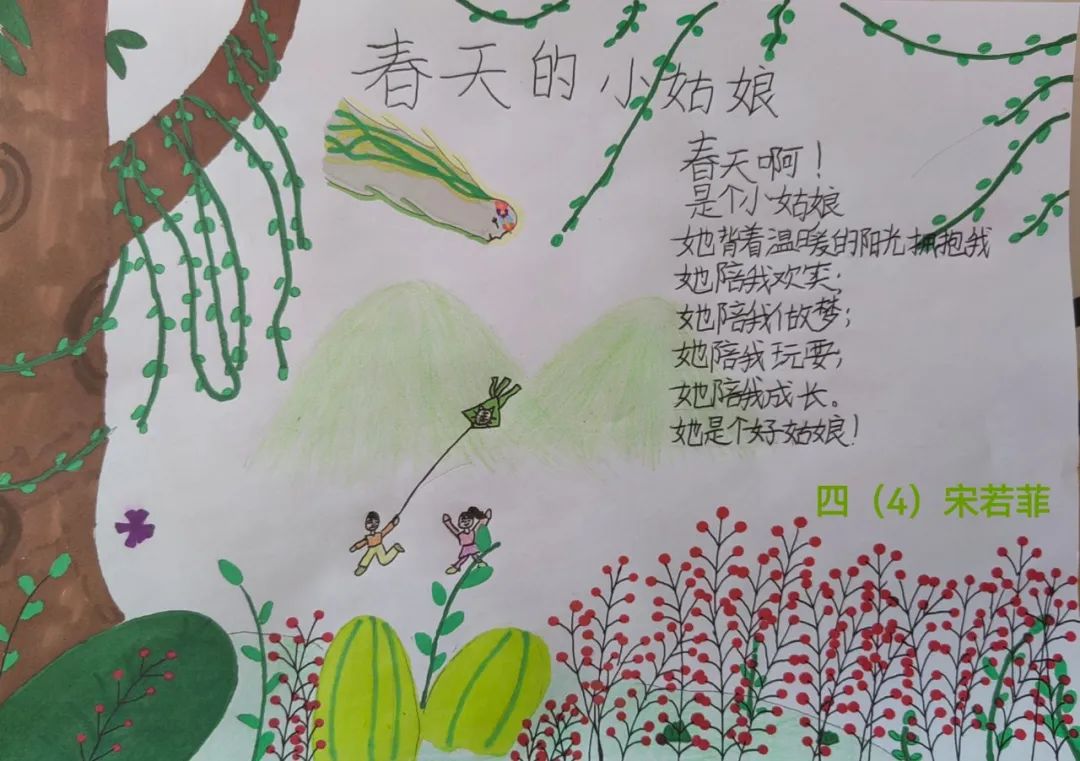 春天的小姑娘
春天啊！
是个小姑娘
她背着温暖的阳光拥抱我
她陪我欢笑；
她陪我做梦；
她陪我玩耍；
她陪我成长。
她是个好姑娘！
四（4）宋若菲